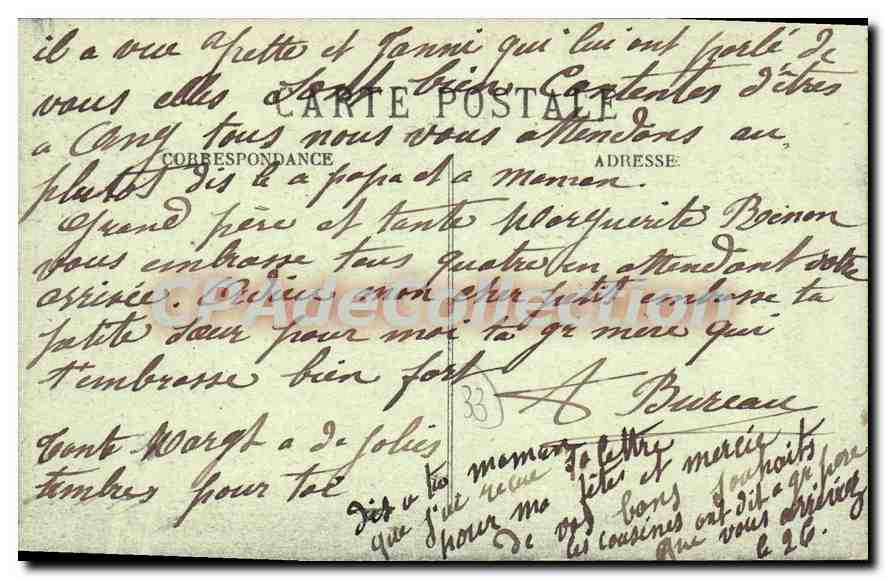 il a vue Ap ette et Janni qui lui ont parlé de
vous elles sont bien Contentes d'êtres
a Cang tous nous vous attendons au
CARTE POSTALE
CORRESPONDANCE
ADRESSE
plutot dis le a papa et a maman.
Grand père et tante Marguerite Beinon
vous embrasse tous quatre en attendant votre
arrivée. Adieu mon cher petit embasse ta
petite sœur pour moi ta gr mere qui
t'embrasse bien fort
33
A Bureau
tante Margt a de Jolies
timbres pour toi
dis a ta maman
que j'ai reçue sa lettre
pour ma fêtes et mercie
de vos bons souhaits
les cousines ont dit a gr pere
que vous arrivéez
le 26.
CPAdeCollection